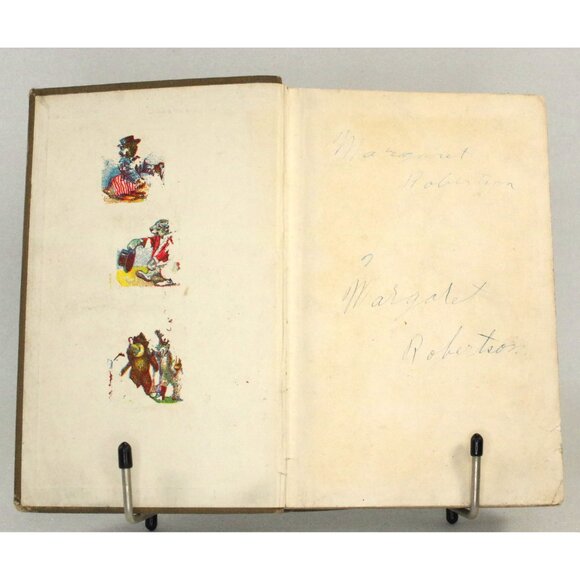 Margaret
Robertson
Margaret
Robertson